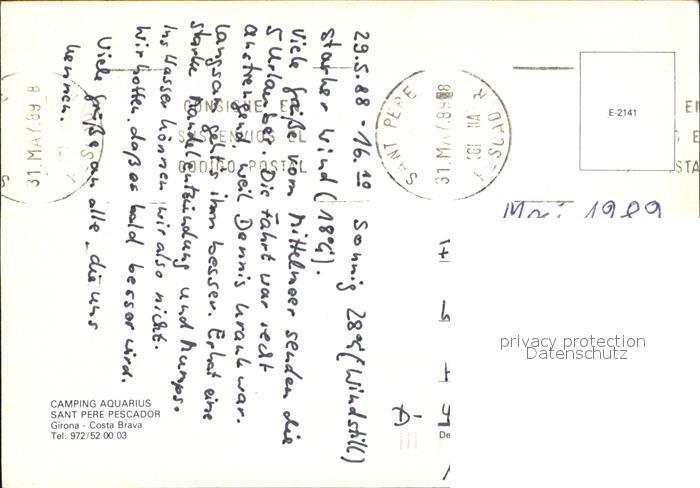 29.5.88 - 16.10 Sonnig 28°C (Windstill)
starker Wind (18°C).
Viele Grüße vom Mittelmeer senden die
5 Urlauber. Die Fahrt war recht
anstrengend, weil Dennis krank war.
Langsam geht's ihm besser. Er hat eine
starke Mandelentzündung und Mumps.
Ins Wasser können wir also nicht.
Wir hoffen, daß es bald besser wird.
Viele Grüße an alle, die uns
kennen.
CONSIGNE EN
SUS ENVIOS EL
CODIGO POSTAL
31.MAY.89 8
SANT PERE PESCADOR
31.MAY.89 8
E-2141
Mai 1989
privacy protection
Datenschutz
CAMPING AQUARIUS
SANT PERE PESCADOR
Girona - Costa Brava
Tel. 972/52 00 03
De